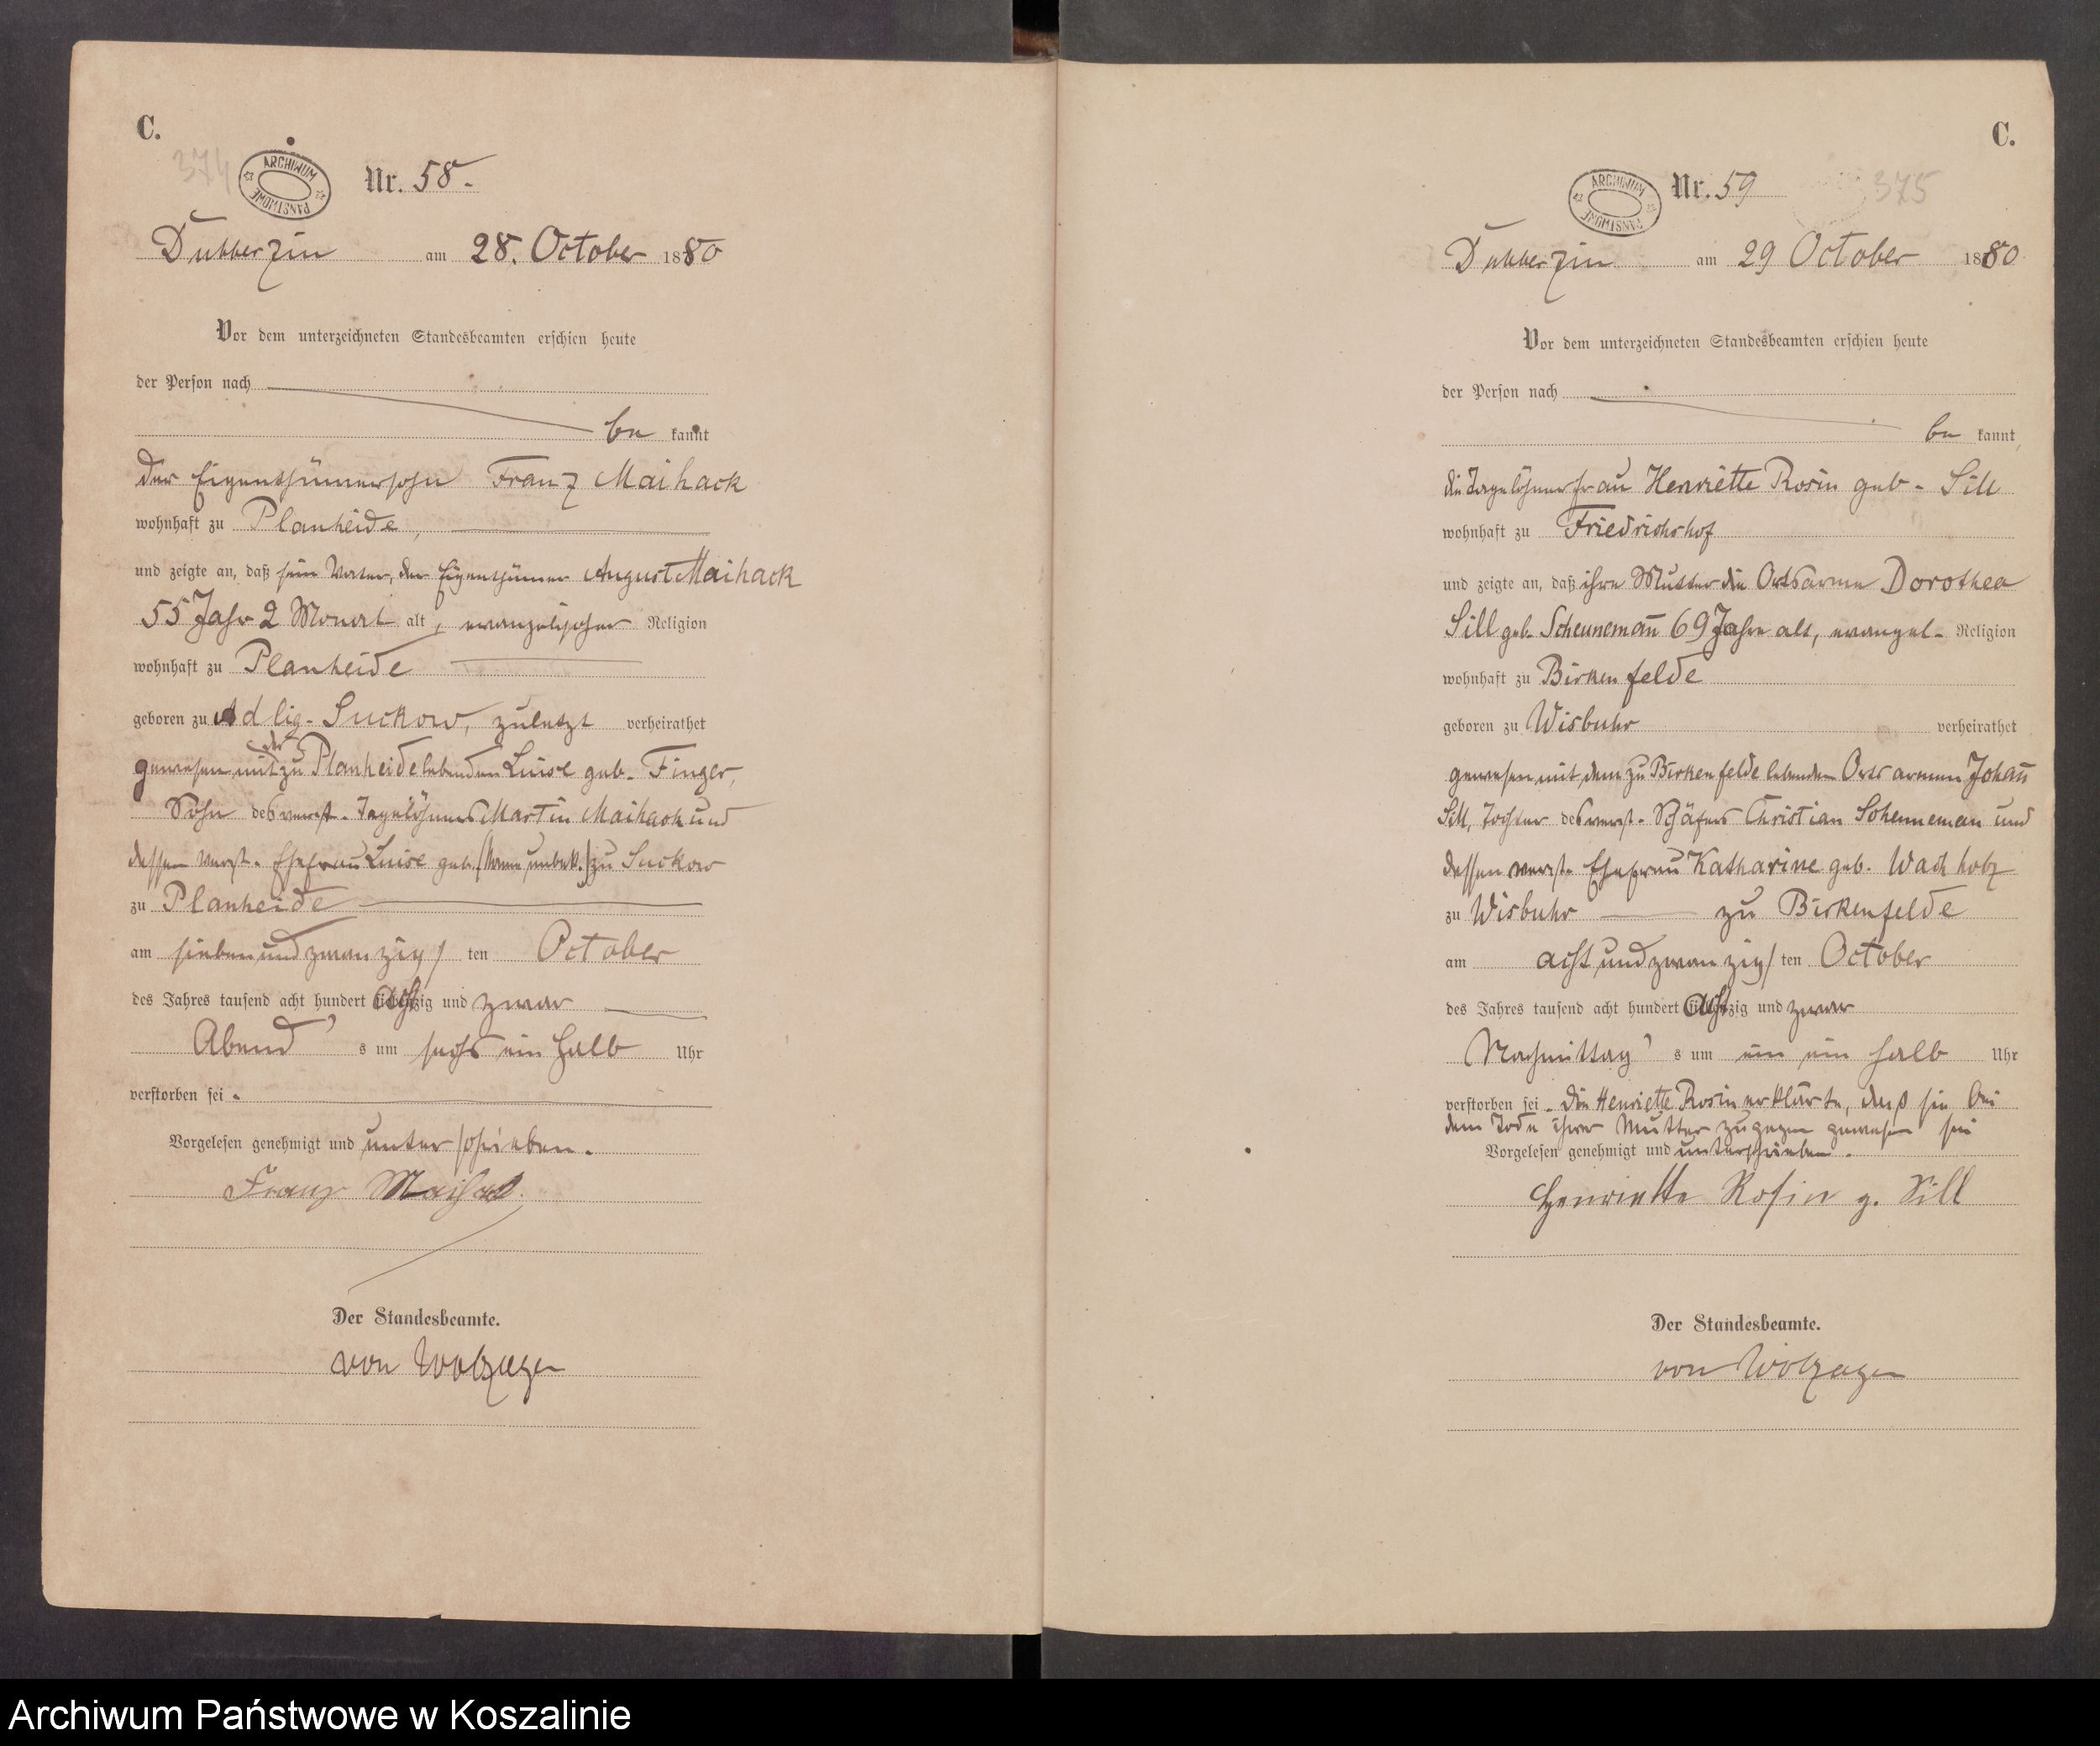 C.
374
ARCHIWUM
PAŃSTWOWE
Nr. 58.
Dubberzin am 28. October 1880
Vor dem unterzeichneten Standesbeamten erschien heute
der Person nach
be kannt
der Eigenthümersohn Franz Maihack
wohnhaft zu Planheide,
und zeigte an, daß sein Vater, der Eigenthümer August Maihack
55 Jahr 2 Monat alt, evangelischer Religion
wohnhaft zu Planheide
geboren zu Adlig. Suckow, zuletzt verheirathet
gewesen mit der zu Planheide lebenden Luise geb. Finger,
Sohn des verst. Tagelöhners Martin Maihack und
dessen verst. Ehefrau Luise geb. (Name unbek.) zu Suckow
zu Planheide
am siebenundzwanzig/ten October
des Jahres tausend acht hundert achtzig und zwar
Abend's um sechs ein halb Uhr
verstorben sei.
Vorgelesen genehmigt und unterschrieben.
Franz Maihack
Der Standesbeamte.
von Wolzogen
C.
ARCHIWUM
PAŃSTWOWE
Nr. 59
375
Dubberzin am 29 October 1880
Vor dem unterzeichneten Standesbeamten erschien heute
der Person nach
be kannt,
die Tagelöhnerfrau Henriette Rosin geb. Sill
wohnhaft zu Friedrichshof
und zeigte an, daß ihre Mutter die Ortsarme Dorothea
Sill geb. Scheunemañ 69 Jahre alt, evangel. Religion
wohnhaft zu Birkenfelde
geboren zu Wisbuhr verheirathet
gewesen mit dem zu Birkenfelde lebenden Ortsarmen Johañ
Sill, Tochter des verst. Schäfers Christian Scheuneman und
dessen verst. Ehefrau Katharine geb. Wachholz
zu Wisbuhr zu Birkenfelde
am acht und zwanzig/ten October
des Jahres tausend acht hundert achtzig und zwar
Nachmittag's um ein ein halb Uhr
verstorben sei. Die Henriette Rosin erklärte, daß sie bei
dem Tode ihrer Mutter zugegen gewesen sei
Vorgelesen genehmigt und unterschrieben.
Henriette Rosin g. Sill
Der Standesbeamte.
von Wolzogen
Archiwum Państwowe w Koszalinie